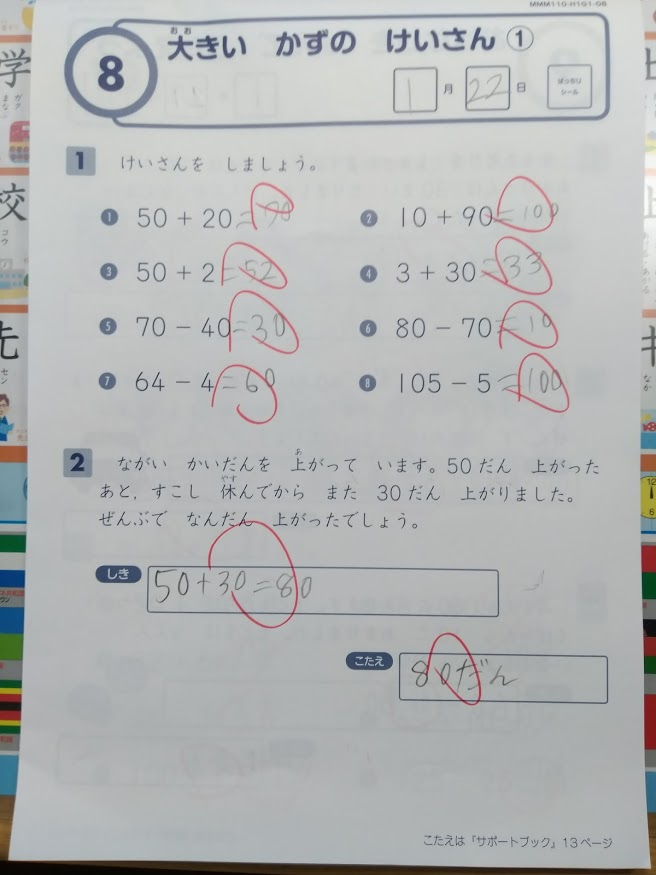 MMM110-H1G1-06
8
大きい かずの けいさん①
おお
1月22日
ばっちりシール
1 けいさんを しましょう。
❶ 50+20=70 ❷ 10+90=100
❸ 50+2=52 ❹ 3+30=33
❺ 70-40=30 ❻ 80-70=10
❼ 64-4=60 ❽ 105-5=100
2 ながい かいだんを 上がって います。50だん 上がった
あと,すこし 休んでから また 30だん 上がりました。
ぜんぶで なんだん 上がったでしょう。
しき 50+30=80
こたえ 80だん
こたえは「サポートブック」13ページ
学
校
コウ
先
セン